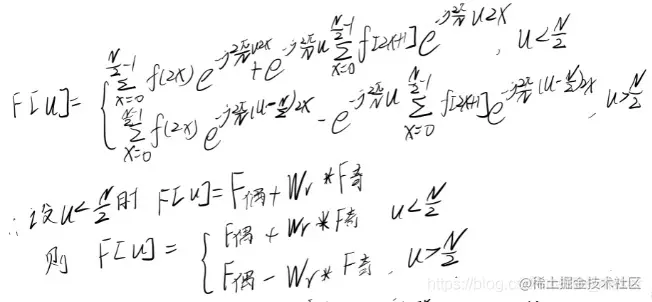 F[u] = { \sum_{x=0}^{\frac{N}{2}-1} f(2x) e^{-j\frac{2π}{N}u2x} + e^{-j\frac{2π}{N}u} \sum_{x=0}^{\frac{N}{2}-1} f[2x+1] e^{-j\frac{2π}{N}u2x}, u < \frac{N}{2}
\sum_{x=0}^{\frac{N}{2}-1} f(2x) e^{-j\frac{2π}{N}(u-\frac{N}{2})2x} - e^{-j\frac{2π}{N}u} \sum_{x=0}^{\frac{N}{2}-1} f[2x+1] e^{-j\frac{2π}{N}(u-\frac{N}{2})2x}, u > \frac{N}{2}
∴ 设 u < \frac{N}{2} 时 F[u] = F偶 + Wr * F奇
则 F[u] = { F偶 + Wr * F奇 u < \frac{N}{2}
F偶 - Wr * F奇, u > \frac{N}{2}
https://blog.c
@稀土掘金技术社区